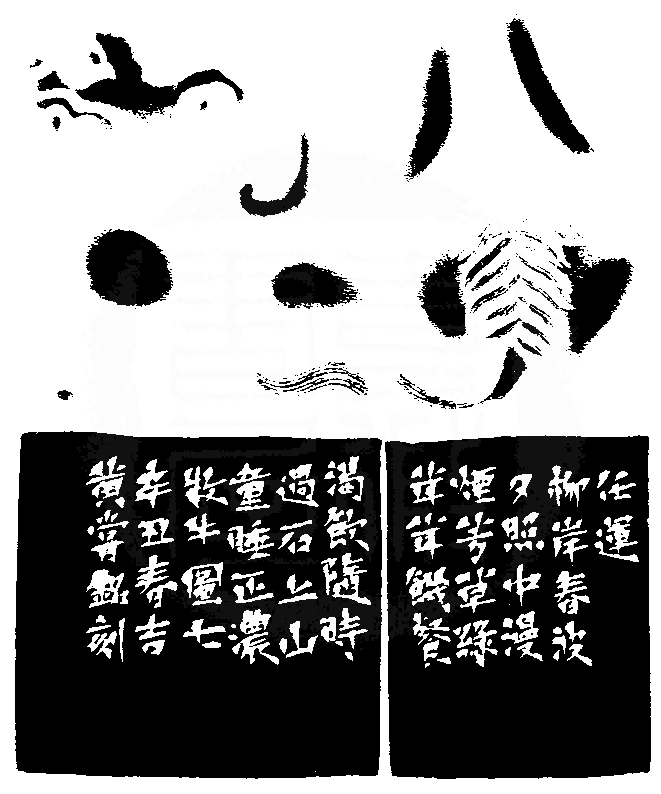 任運
柳岸春波
夕照中漫
煙芳草綠
茸茸饑餐
渴飲隨時
過石上山
童睡正濃
牧牛圖七
辛丑春吉
黄嘗銘刻